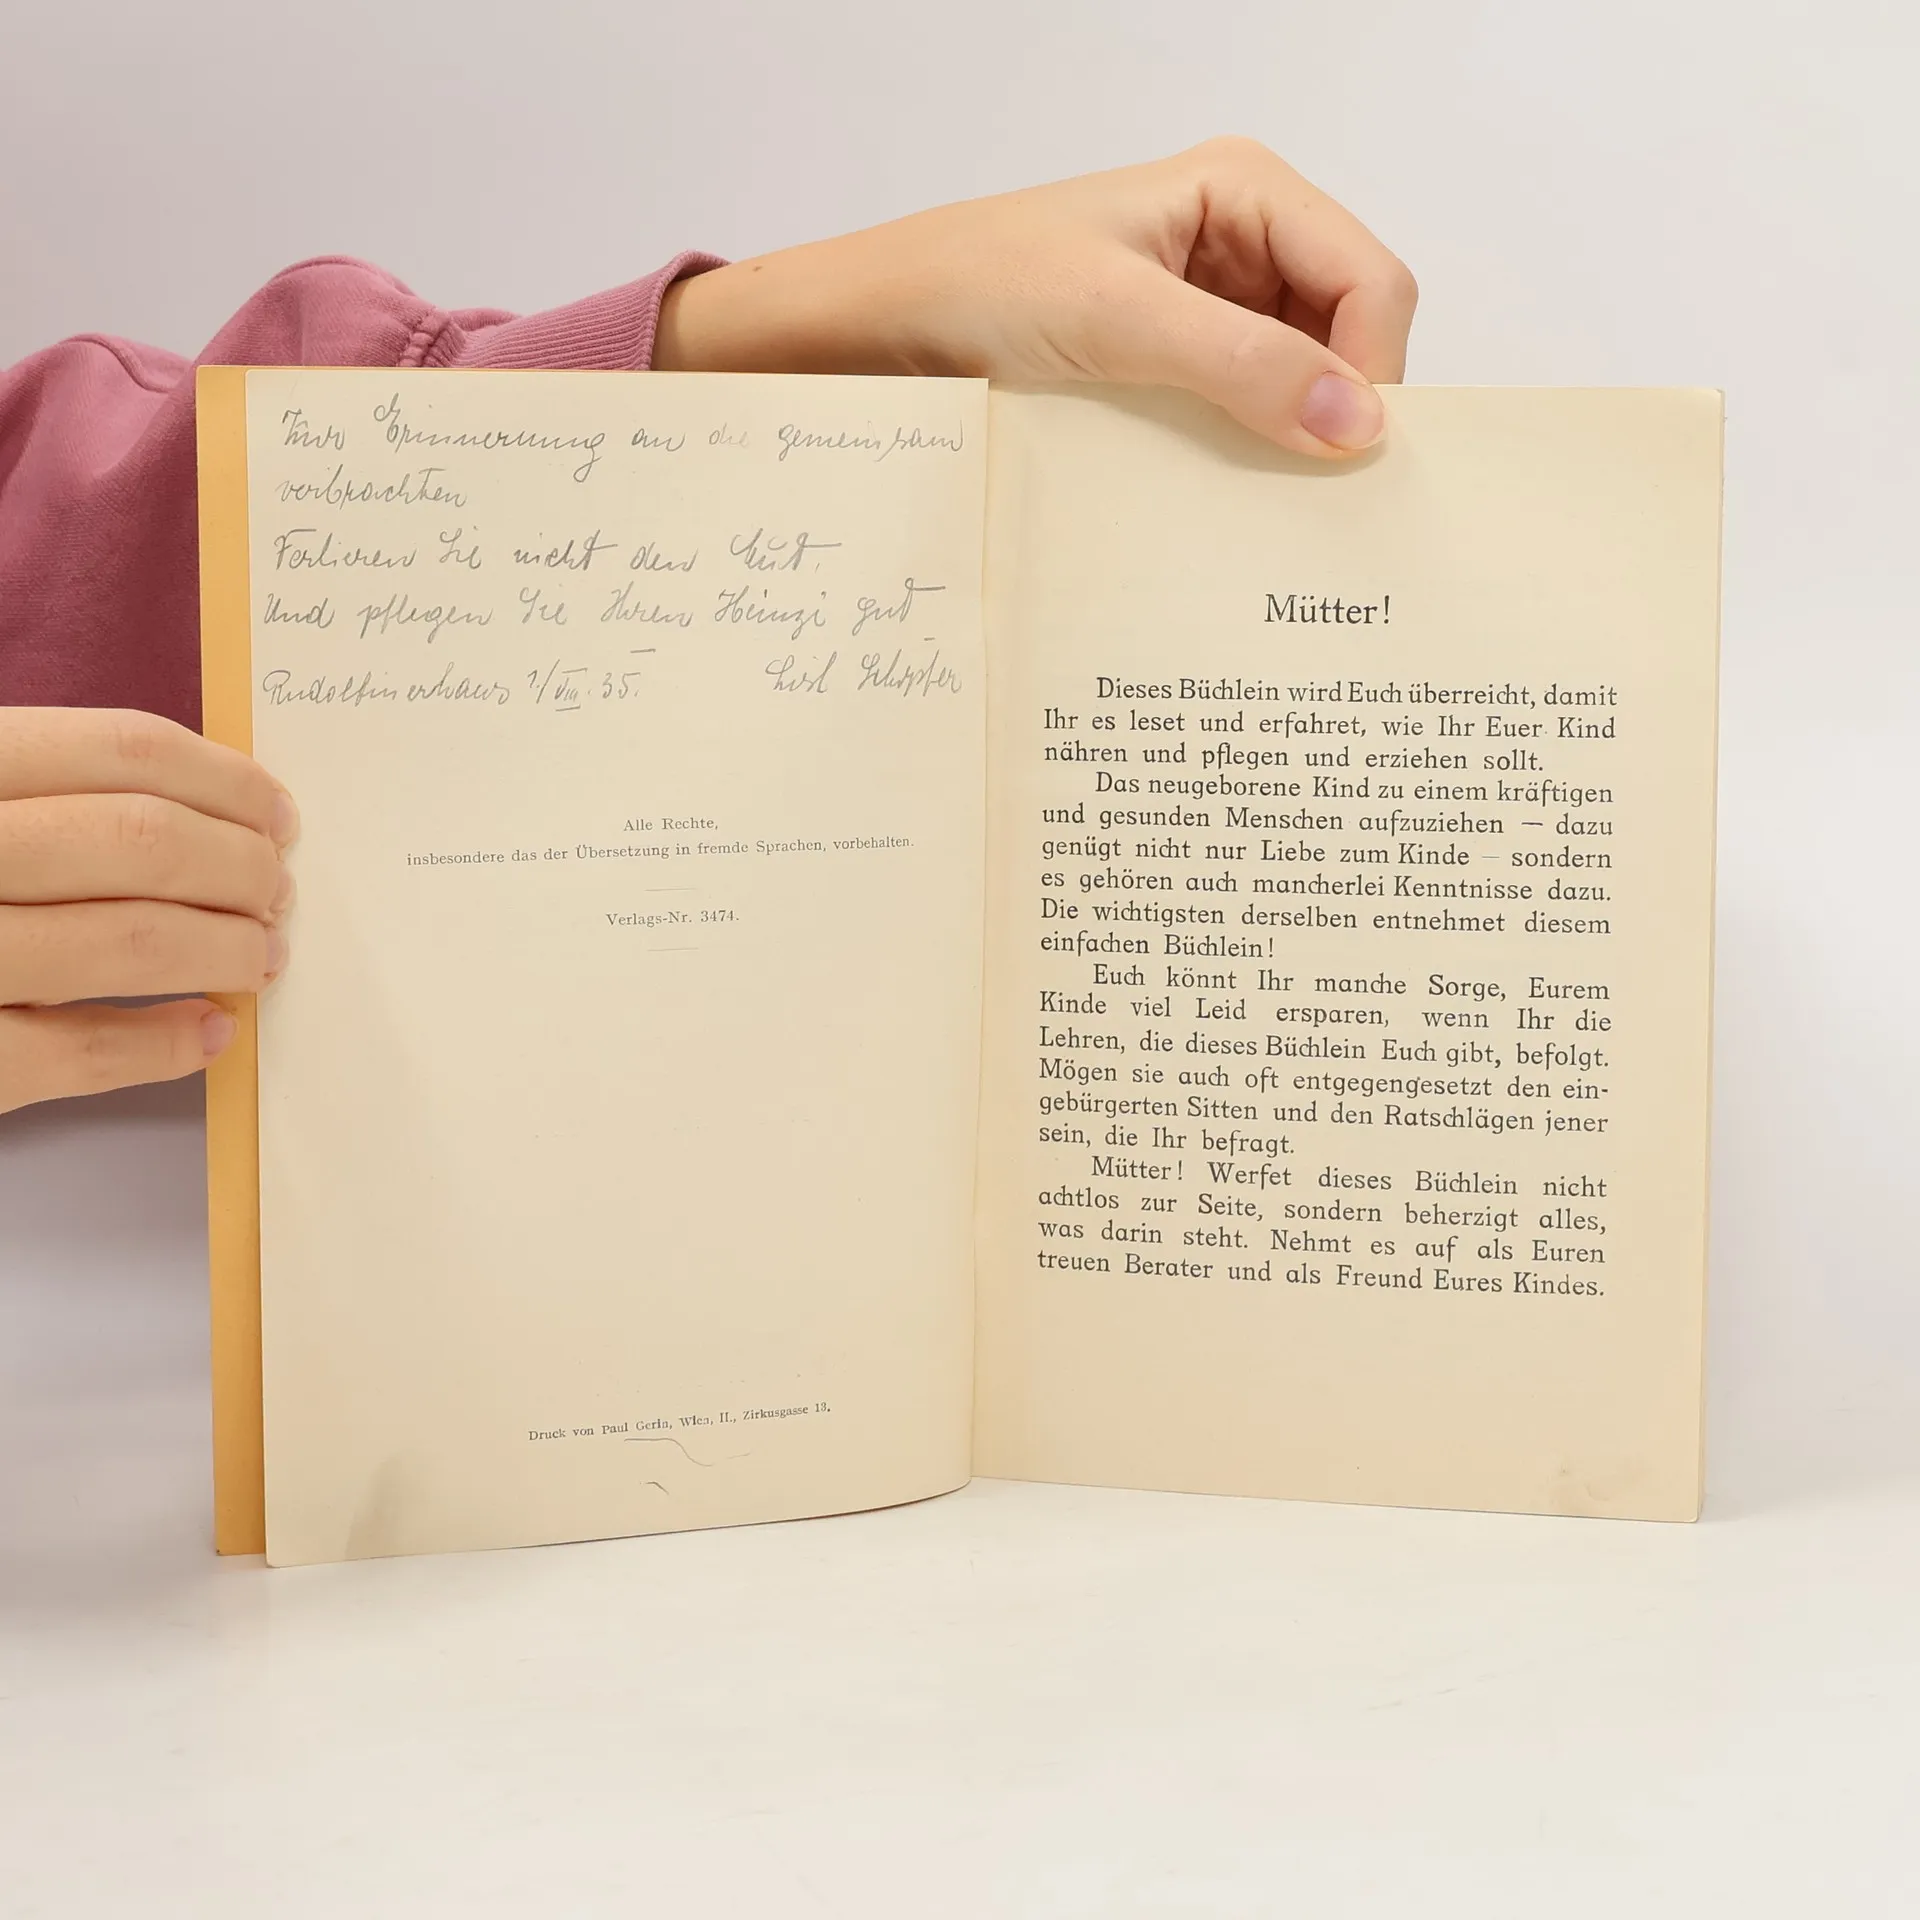 Zur Erinnerung an die gemeinsam
verbrachten
Verlieren Sie nicht den Mut.
Und pflegen Sie Ihren Heinzi gut
Rudolfinerhaus 1/VIII. 35.
Liesl Schöpfer
Alle Rechte,
insbesondere das der Übersetzung in fremde Sprachen, vorbehalten.
Verlags-Nr. 3474.
Druck von Paul Gerin, Wien, II., Zirkusgasse 13.
Mütter!
Dieses Büchlein wird Euch überreicht, damit
Ihr es leset und erfahret, wie Ihr Euer Kind
nähren und pflegen und erziehen sollt.
Das neugeborene Kind zu einem kräftigen
und gesunden Menschen aufzuziehen — dazu
genügt nicht nur Liebe zum Kinde — sondern
es gehören auch mancherlei Kenntnisse dazu.
Die wichtigsten derselben entnehmet diesem
einfachen Büchlein!
Euch könnt Ihr manche Sorge, Eurem
Kinde viel Leid ersparen, wenn Ihr die
Lehren, die dieses Büchlein Euch gibt, befolgt.
Mögen sie auch oft entgegengesetzt den ein-
gebürgerten Sitten und den Ratschlägen jener
sein, die Ihr befragt.
Mütter! Werfet dieses Büchlein nicht
achtlos zur Seite, sondern beherzigt alles,
was darin steht. Nehmt es auf als Euren
treuen Berater und als Freund Eures Kindes.